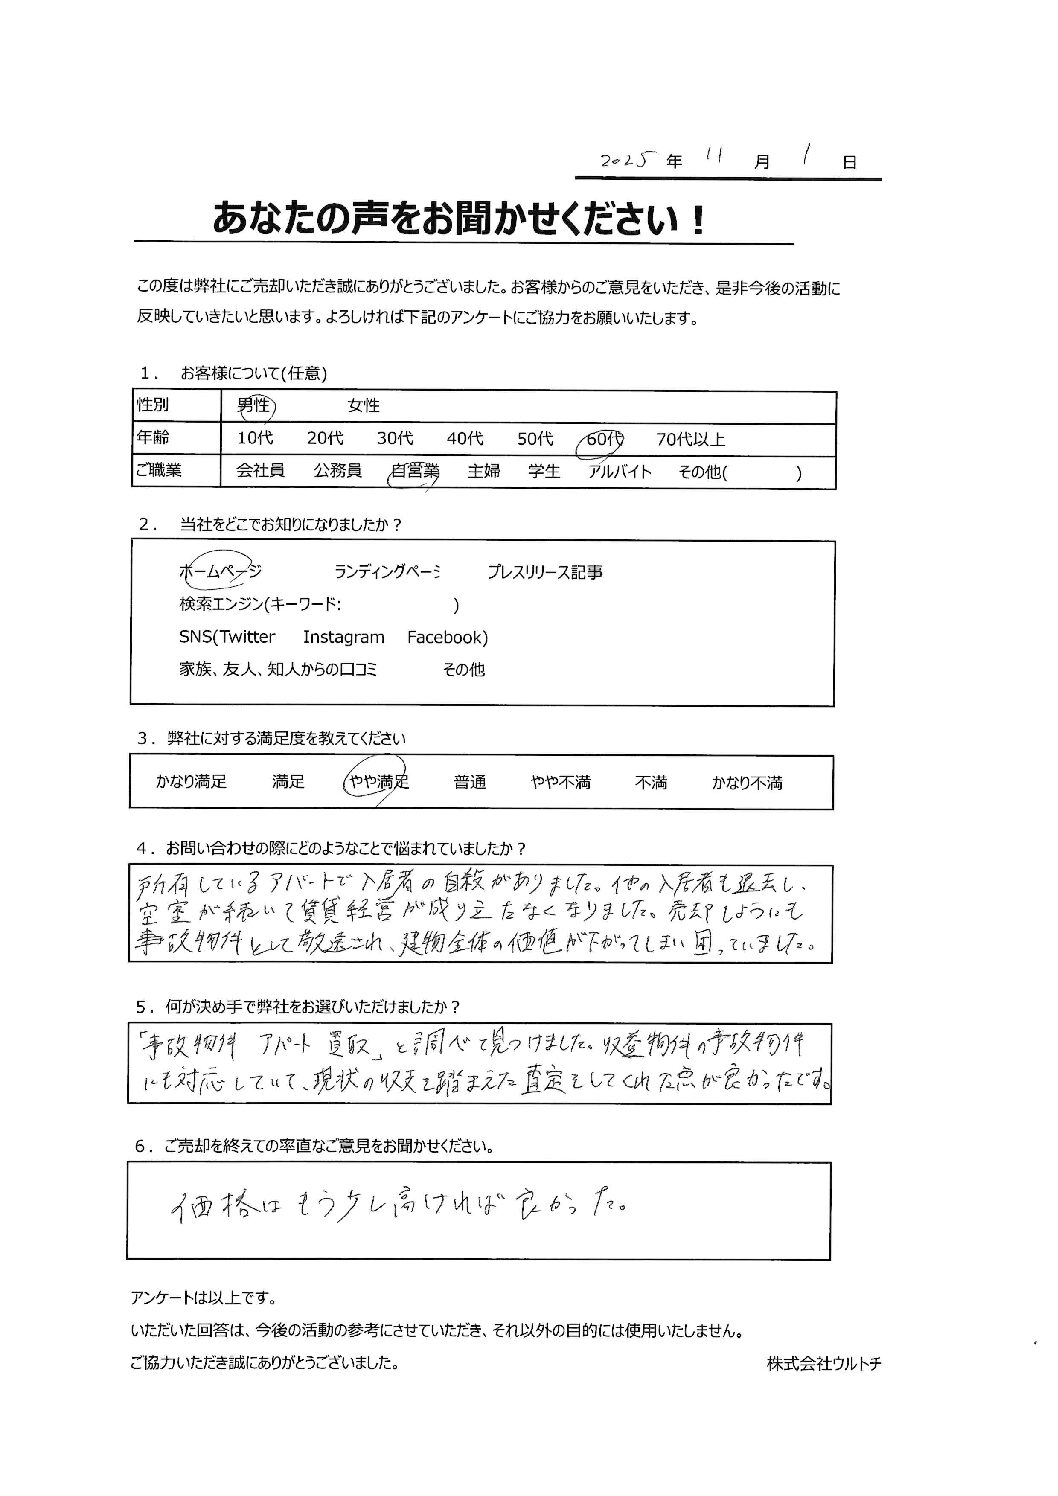 2025年 11月 1日
あなたの声をお聞かせください！
この度は弊社にご売却いただき誠にありがとうございました。お客様からのご意見をいただき、是非今後の活動に
反映していきたいと思います。よろしければ下記のアンケートにご協力をお願いいたします。
1． お客様について(任意)
性別 男性 女性
年齢 10代 20代 30代 40代 50代 60代 70代以上
ご職業 会社員 公務員 自営業 主婦 学生 アルバイト その他( )
2． 当社をどこでお知りになりましたか？
ホームページ ランディングページ プレスリリース記事
検索エンジン(キーワード: )
SNS(Twitter Instagram Facebook)
家族、友人、知人からの口コミ その他
3．弊社に対する満足度を教えてください
かなり満足 満足 やや満足 普通 やや不満 不満 かなり不満
4．お問い合わせの際にどのようなことで悩まれていましたか？
所有しているアパートで入居者の自殺がありました。他の入居者も退去し、
空室が続いて賃貸経営が成り立たなくなりました。売却しようにも
事故物件として敬遠され、建物全体の価値が下がってしまい困っていました。
5．何が決め手で弊社をお選びいただけましたか？
「事故物件 アパート 買取」と調べて見つけました。収益物件の事故物件
にも対応していて、現状の収支を踏まえた査定をしてくれた点が良かったです。
6．ご売却を終えての率直なご意見をお聞かせください。
価格はもう少し高ければ良かった。
アンケートは以上です。
いただいた回答は、今後の活動の参考にさせていただき、それ以外の目的には使用いたしません。
ご協力いただき誠にありがとうございました。 株式会社ウルトチ